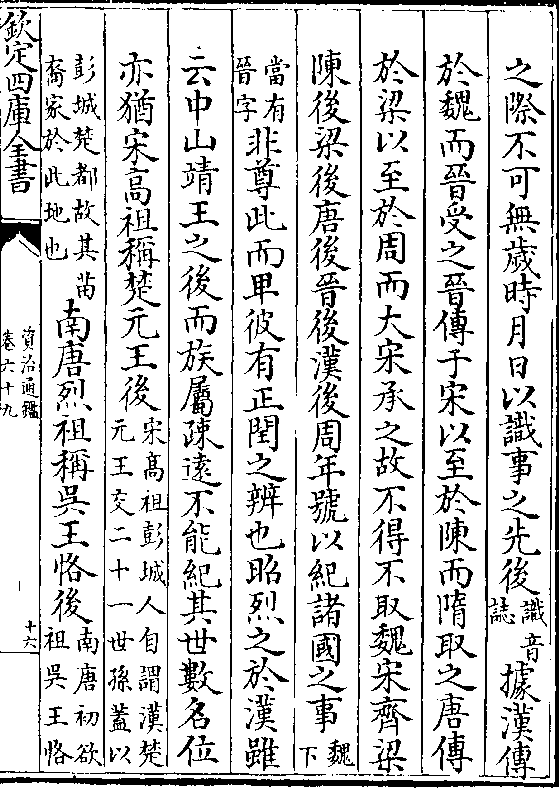 之際不可無歲時月日以識事之先後識音誌據漢傳
於魏而晉受之晉傳于宋以至於陳而隋取之唐傳
於梁以至於周而大宋承之故不得不取魏宋齊梁
陳後梁後唐後晉後漢後周年號以紀諸國之事魏下
當有晉字非尊此而卑彼有正閏之辨也昭烈之於漢雖
云中山靖王之後而族屬疎遠不能紀其世數名位
亦猶宋高祖稱楚元王後宋髙祖彭城人自謂漢楚元王交二十一世孫蓋以
彭城楚都故其苗裔家於此地也南唐烈祖稱吳王恪後南唐初欲祖吳王恪
欽定四庫全書
資治通鑑
卷六十九
十六